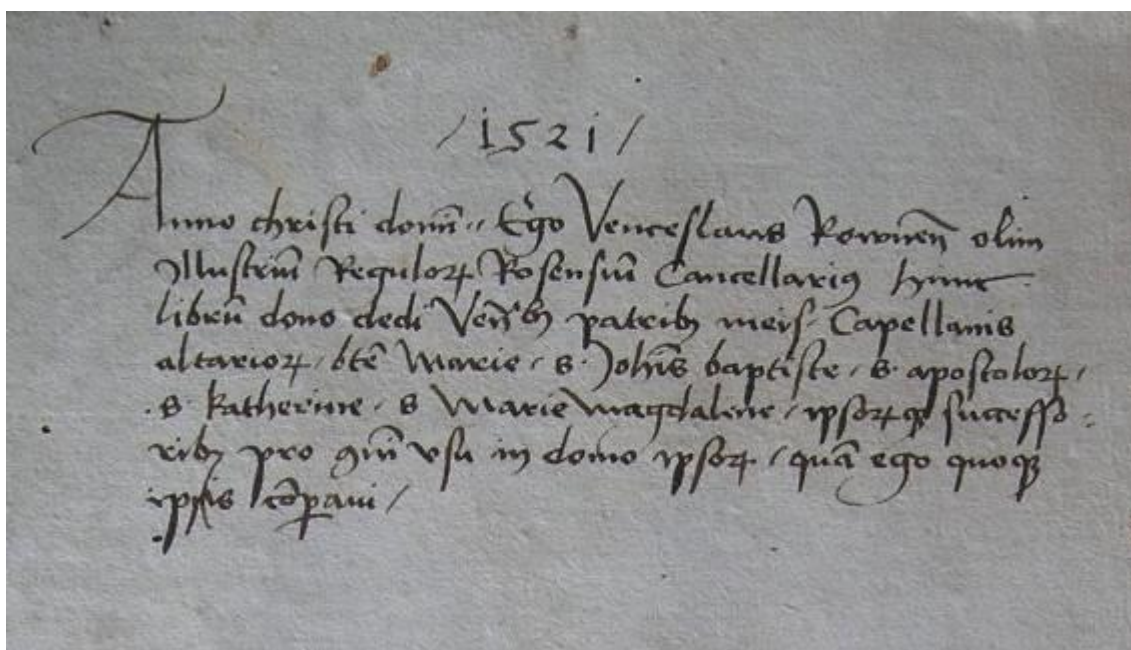 /1521/
Anno christi domī .. Ego Venceslaus Rowneñ olim
Illustriū Regulorꝝ Rosensiū Cancellariꝯ hunc
librū dono dedi Veñbꝫ patribꝫ meis Capellanis
altariorꝝ / bte Marie / s. Johīs baptiste / s. apostolorꝝ /
s. Katherine / s Marie Magdalene / ipsorꝝqꝫ successo-
ribꝫ pro ꝯmūi vsu in domo ipsorꝝ / quā ego quoqꝫ
ipsis cōꝑaui /